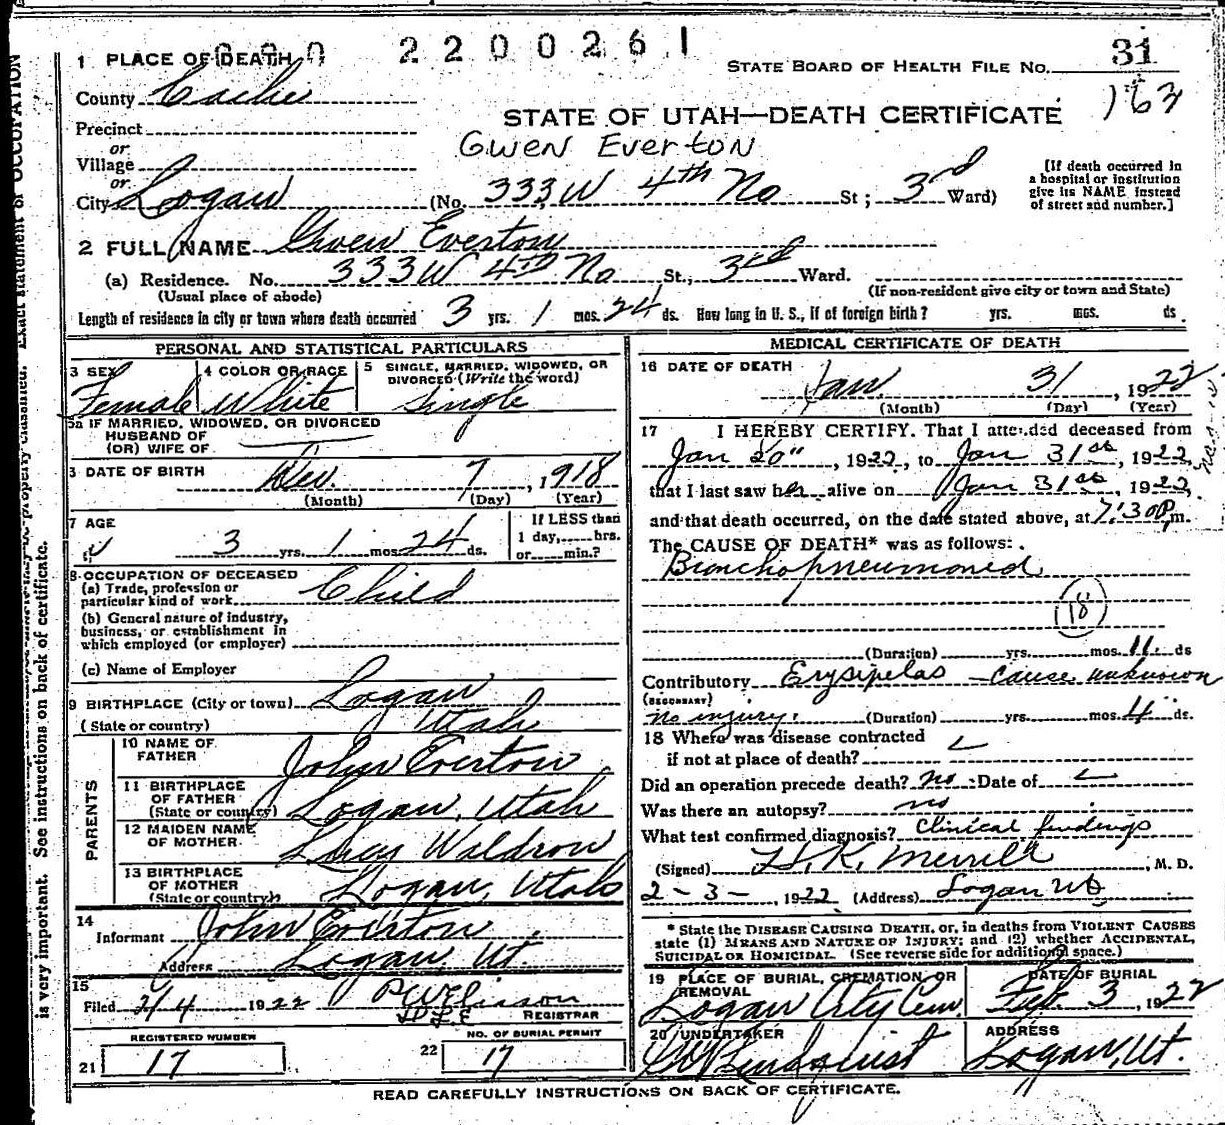 2200261
1 PLACE OF DEATH
STATE BOARD OF HEALTH FILE NO. 31
County Cache
163
STATE OF UTAH—DEATH CERTIFICATE
Precinct
or
Gwen Everton
Village
or
City Logan (No. 333 W 4th No St; 3rd Ward)
[If death occurred in a hospital or institution give its NAME instead of street and number.]
2 FULL NAME Gwen Everton
(a) Residence. No. 333 W 4th No St., 3rd Ward.
(Usual place of abode) (If non-resident give city or town and State)
Length of residence in city or town where death occurred 3 yrs. 1 mos. 24 ds. How long in U. S., if of foreign birth? yrs. mos. ds.
PERSONAL AND STATISTICAL PARTICULARS
3 SEX Female
4 COLOR OR RACE White
5 SINGLE, MARRIED, WIDOWED, OR DIVORCED (Write the word) Single
5a IF MARRIED, WIDOWED, OR DIVORCED
HUSBAND OF
(OR) WIFE OF
DATE OF BIRTH Dec. 7, 1918
(Month) (Day) (Year)
7 AGE 3 yrs. 1 mos. 24 ds.
If LESS than
1 day, hrs.
or min.?
8 OCCUPATION OF DECEASED
(a) Trade, profession or
particular kind of work Child
(b) General nature of industry,
business, or establishment in
which employed (or employer)
(c) Name of Employer
9 BIRTHPLACE (City or town) Logan
(State or country) Utah
PARENTS
10 NAME OF FATHER John Everton
11 BIRTHPLACE OF FATHER (State or country) Logan, Utah
12 MAIDEN NAME OF MOTHER Waldron
13 BIRTHPLACE OF MOTHER (State or country) Logan, Utah
14
Informant John Everton
Address Logan, Ut.
15
Filed 2/4 1922
REGISTRAR
REGISTERED NUMBER
21 17
NO. OF BURIAL PERMIT
22 17
MEDICAL CERTIFICATE OF DEATH
16 DATE OF DEATH Jan 31, 1922
(Month) (Day) (Year)
17 I HEREBY CERTIFY, That I attended deceased from
Jan 20", 1922, to Jan 31st, 1922,
that I last saw her alive on Jan 31st, 1922,
and that death occurred, on the date stated above, at 7:30 P m.
The CAUSE OF DEATH* was as follows:
Bronchopneumonia
18
(Duration) yrs. mos. 11 ds
Contributory Erysipelas - cause unknown
(SECONDARY)
no injury. (Duration) yrs. mos. 4 ds.
18 Where was disease contracted
if not at place of death?
Did an operation precede death? no Date of
Was there an autopsy? no
What test confirmed diagnosis? Clinical findings
(Signed) H. K. Merrill, M. D.
2-3-, 1922 (Address) Logan Ut
* State the DISEASE CAUSING DEATH, or, in deaths from VIOLENT CAUSES
state (1) MEANS AND NATURE OF INJURY; and (2) whether ACCIDENTAL,
SUICIDAL OR HOMICIDAL. (See reverse side for additional space.)
19 PLACE OF BURIAL, CREMATION OR REMOVAL Logan City Cem.
DATE OF BURIAL Feb. 3, 1922
20 UNDERTAKER Lindquist
ADDRESS Logan, Ut.
READ CAREFULLY INSTRUCTIONS ON BACK OF CERTIFICATE.
is very important. See instructions on back of certificate. Exact statement of OCCUPATION